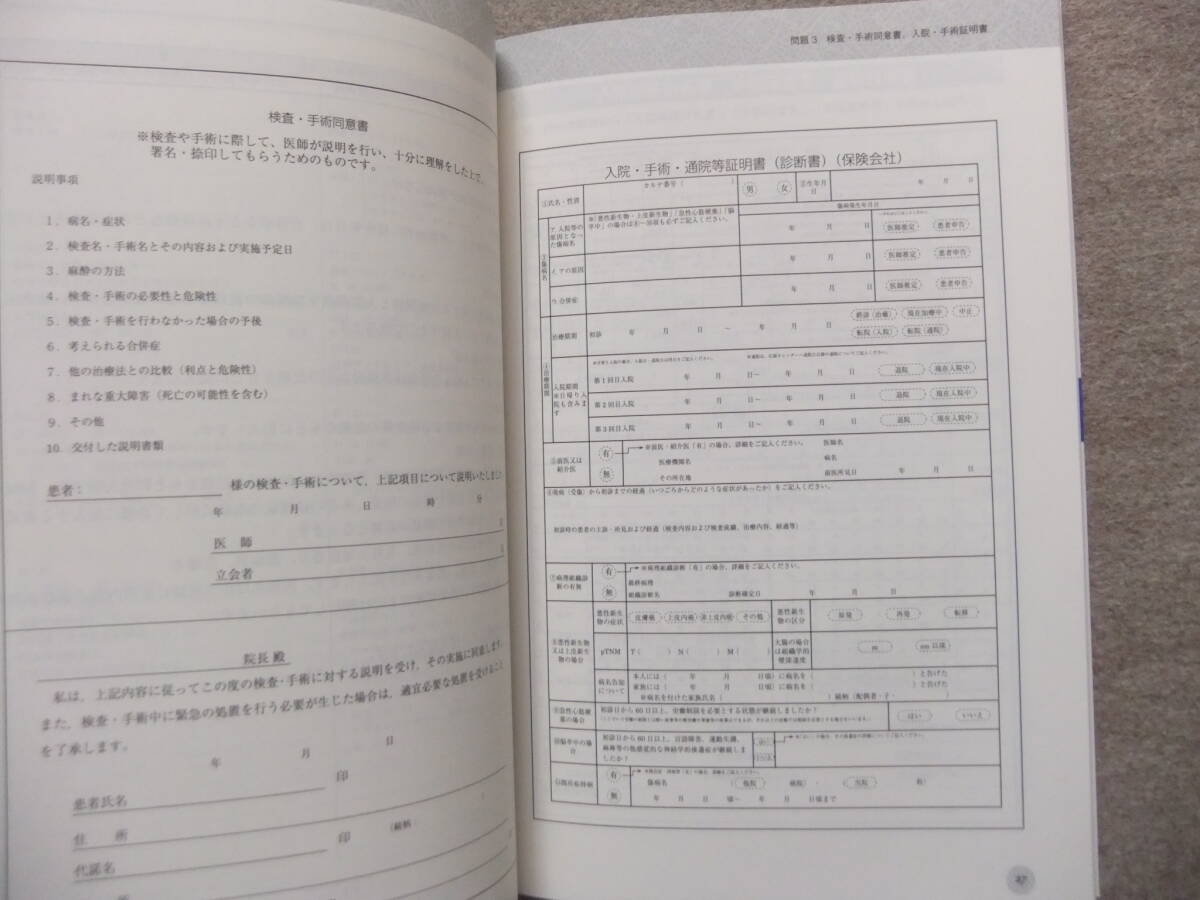 検査・手術同意書
※検査や手術に際して、医師が説明を行い、十分に理解をした上で、
署名・捺印してもらうためのものです。
説明事項
1. 病名・症状
2. 検査名・手術名とその内容および実施予定日
3. 麻酔の方法
4. 検査・手術の必要性と危険性
5. 検査・手術を行わなかった場合の予後
6. 考えられる合併症
7. 他の治療法との比較（利点と危険性）
8. まれな重大障害（死亡の可能性を含む）
9. その他
10. 交付した説明書類
患者： 様の検査・手術について、上記項目について説明いたしました
年 月 日 時 分
医 師
立会者
院長 殿
私は、上記内容に従ってこの度の検査・手術に対する説明を受け、その実施に同意します
また、検査・手術中に緊急の処置を行う必要が生じた場合は、適宜必要な処置を受けること
を了承します。
年 月 日
患者氏名 印
住 所
代諾名 印 （続柄
問題3 検査・手術同意書、入院・手術証明書
入院・手術・通院等証明書（診断書）（保険会社）
①氏名・性別 カルテ番号（ ） 男 女 ②生年月日 年 月 日
傷病発生年月日
ア 入院等の原因となった傷病名
年 月 日 医師推定 患者申告
イ アの原因 年 月 日 医師推定 患者申告
ウ 合併症 年 月 日 医師推定 患者申告
治療期間 初診 年 月 日 ～ 年 月 日 終診（治癒） 現在加療中 中止
転院（入院） 転院（通院）
入院期間
※日帰り入院も含みます
第1回目入院 年 月 日～ 年 月 日 退院 現在入院中
第2回目入院 年 月 日～ 年 月 日 退院 現在入院中
第3回目入院 年 月 日～ 年 月 日 退院 現在入院中
⑤前医又は紹介医 有 ※前医・紹介医「有」の場合、詳細をご記入ください。 医師名
医療機関名 病名
無 その所在地 前医所見日 年 月 日
初診時の患者の主訴・所見および経過（検査内容および検査成績、治療内容、経過等）
⑦病理組織診断の有無 有 ※病理組織診断「有」の場合、詳細をご記入ください。
最終病理
無 組織診断名 診断確定日 年 月 日
悪性新生物の症状 皮膚癌 上皮内癌 非上皮内癌 その他 悪性新生物の区分 原発 再発 転移
pTNM T（ ） N（ ） M（ ） 大腸の場合は組織学的壁深達度 m sm以深
病名告知について 本人には（ 年 月 日頃）に病名を（ ）と告げた
家族には（ 年 月 日頃）に病名を（ ）と告げた
初診日から60日以上、労働制限を必要とする状態が継続しましたか？ はい いいえ
初診日から60日以上、言語障害、運動失調、
麻痺等の他感覚的な神経学的後遺症が継続しましたか？
有 傷病名
無 年 月 日頃～ 年 月 日頃まで
27